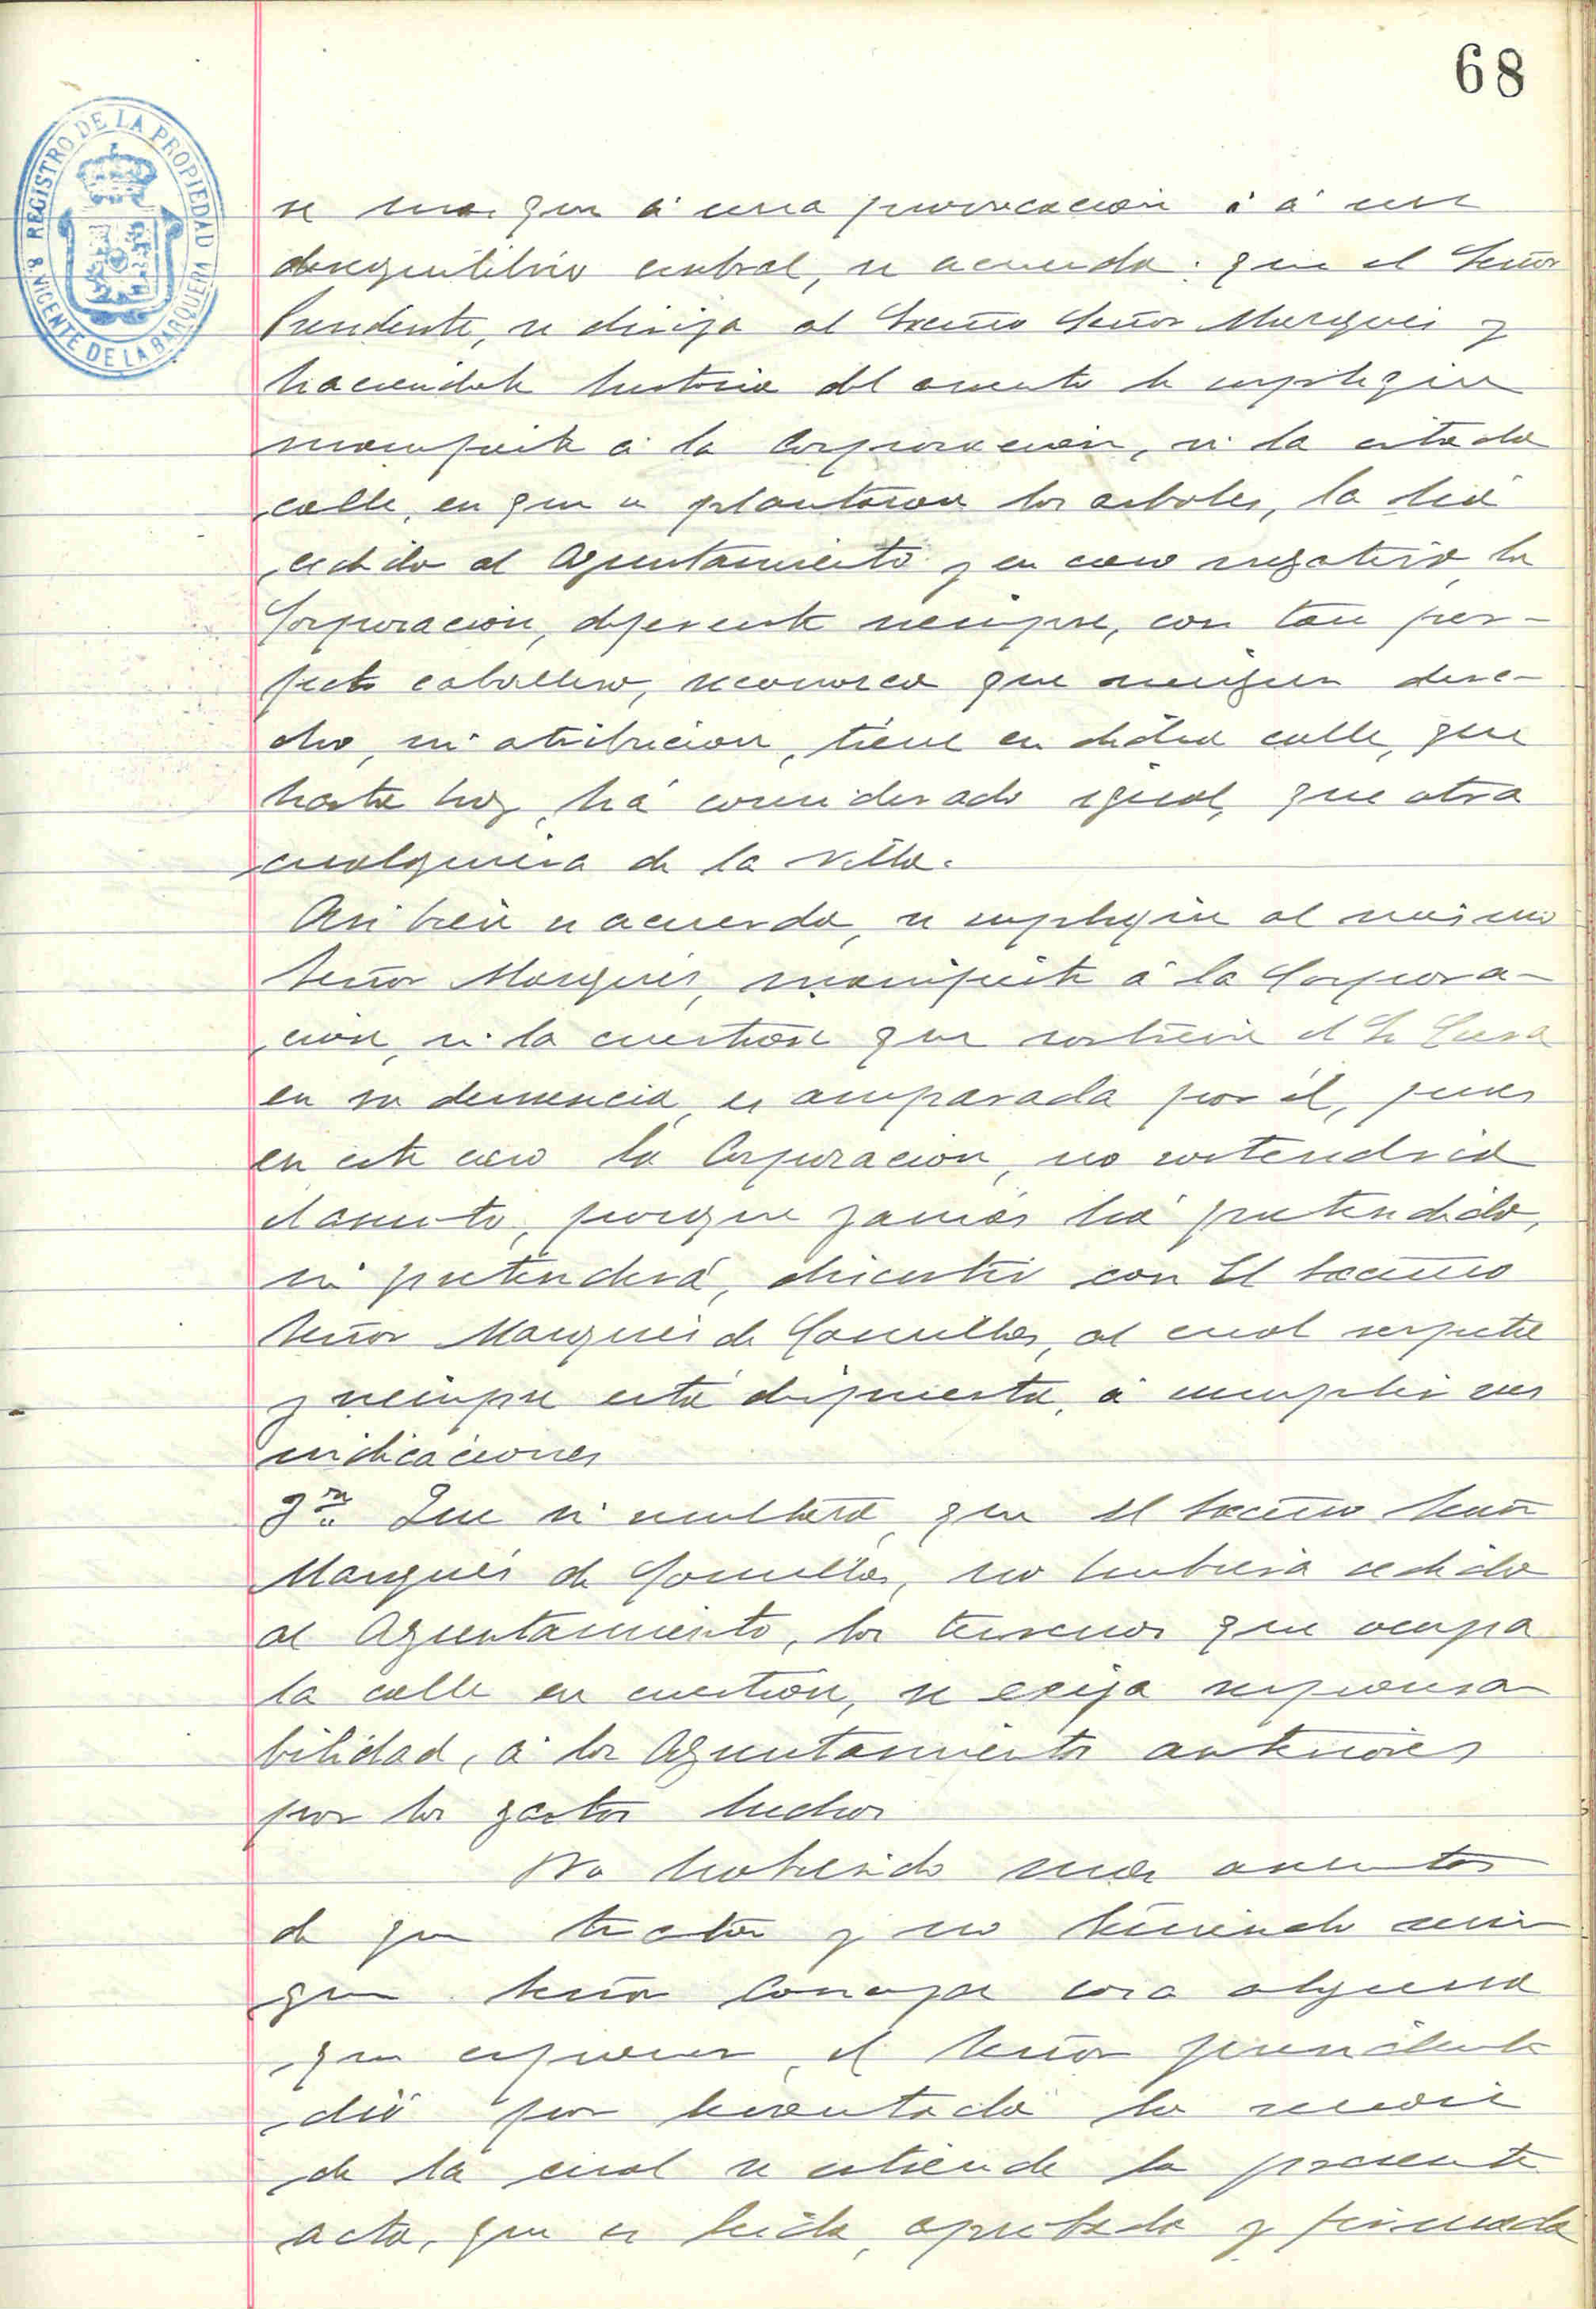 68
REGISTRO DE LA PROPIEDAD
S. VICENTE DE LA BARQUERA
se que á una provocacion ó á un
desequilibrio cerebral, se acuerda: que el Señor
Presidente, se dirija al Excmo Señor Marques y
haciendole historia del asunto le suplique
manifieste á la Corporacion, si la citada
calle, en que se plantaron los arboles, la há
cedido al Ayuntamiento y en caso negativo la
Corporacion, deferente siempre, con tan per-
fecto caballero, reconozca que ningun dere-
cho, ni atribucion, tiene en dicha calle, que
hasta hoy, há considerado igual, que otra
cualquiera de la villa.
Asi bien se acuerda, se suplique al mismo
Señor Marques, manifieste á la Corpora-
cion, si la cuestion que sostiene el Sr Cura
en su denuncia, es amparada por él, pues
en este caso la Corporacion, no sostendria
el asunto, porque jamás há pretendido,
ni pretenderá, discutir con El Excmo
Señor Marques de Comillas, al cual respeta
y siempre está dispuesta, á cumplir sus
indicaciones
3º Que si resultara, que el Excmo Señor
Marqués de Comillas, no hubiera cedido
al Ayuntamiento, los terrenos que ocupa
la calle en cuestion, se exija responsa
bilidad, á los Ayuntamientos anteriores
por los gastos hechos
No habiendo mas asuntos
de que tratar y no teniendo nin
gun Señor Concejal cosa alguna
que exponer, el Señor presidente
dió por levantada la sesion
de la cual se extiende la presente
acta, que es leida, aprobada y firmada